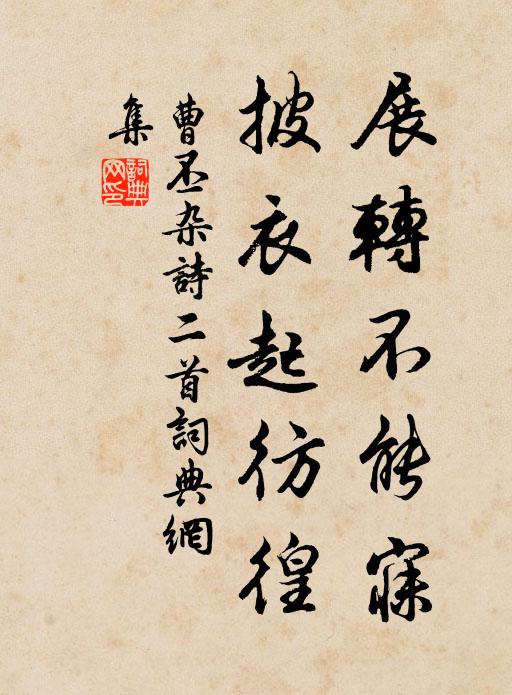 展轉不能寐
披衣起彷徨
曹丕杂詩二首詞典網
集
詞典
网印